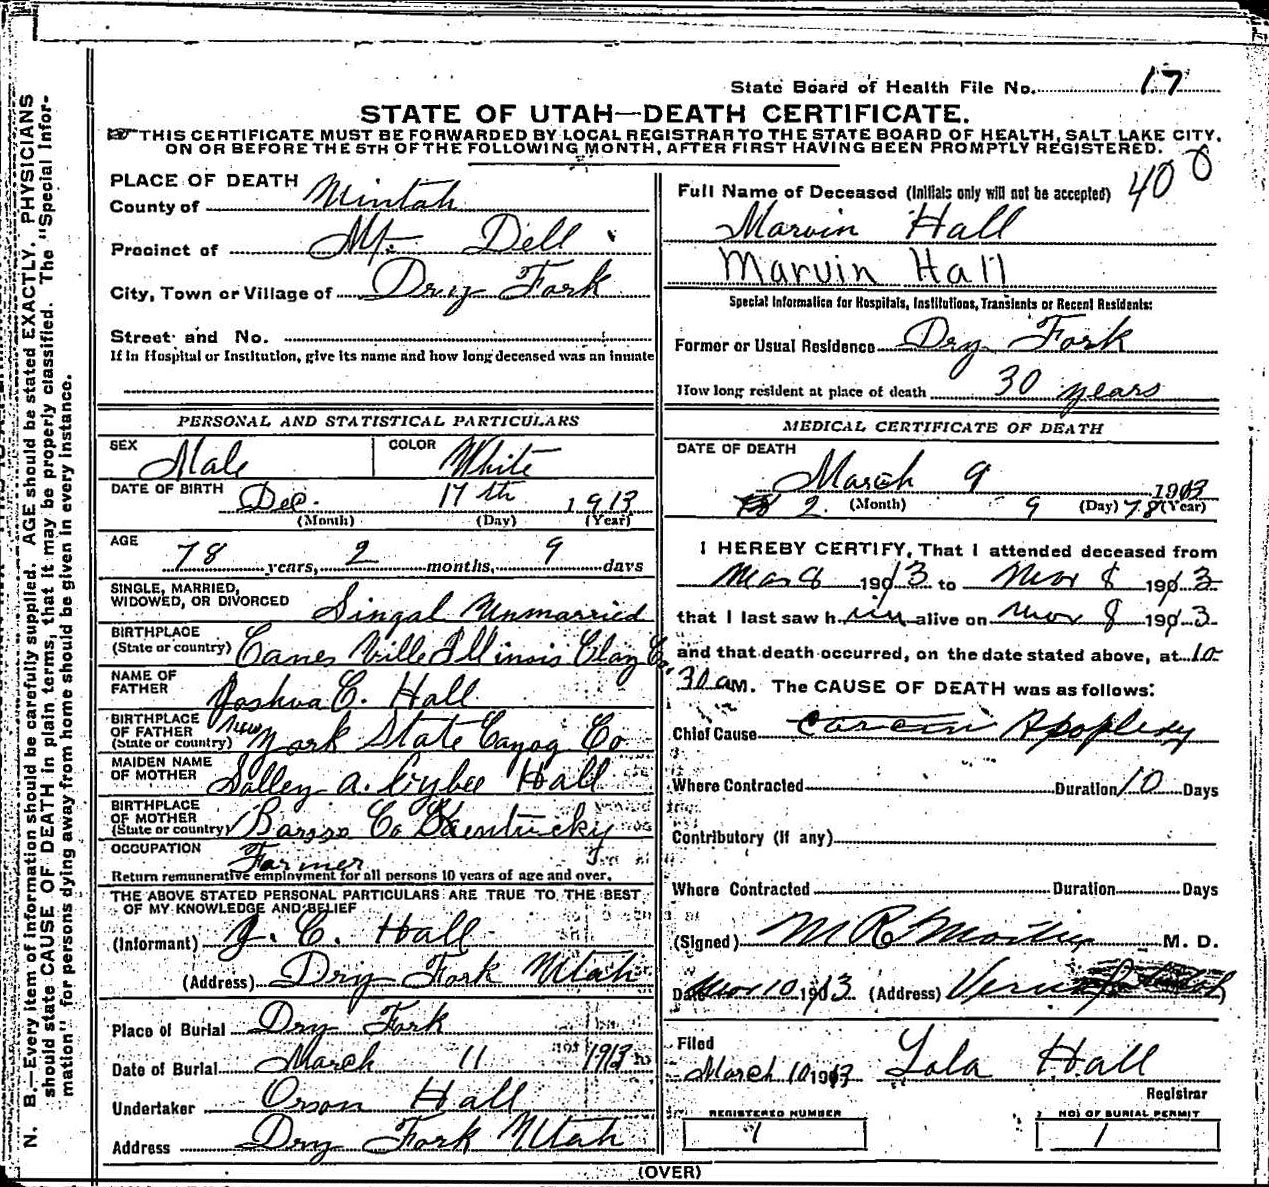 State Board of Health File No. 17
STATE OF UTAH—DEATH CERTIFICATE.
THIS CERTIFICATE MUST BE FORWARDED BY LOCAL REGISTRAR TO THE STATE BOARD OF HEALTH, SALT LAKE CITY,
ON OR BEFORE THE 5TH OF THE FOLLOWING MONTH, AFTER FIRST HAVING BEEN PROMPTLY REGISTERED.
N. B.—Every item of information should be carefully supplied. AGE should be stated EXACTLY. PHYSICIANS
should state CAUSE OF DEATH in plain terms, that it may be properly classified. The "Special Infor-
mation" for persons dying away from home should be given in every instance.
PLACE OF DEATH
County of Uintah
Precinct of Mt. Dell
City, Town or Village of Dry Fork
Street and No.
If in Hospital or Institution, give its name and how long deceased was an inmate
PERSONAL AND STATISTICAL PARTICULARS
SEX Male COLOR White
DATE OF BIRTH Dec. 17th 1913
(Month) (Day) (Year)
AGE
78 years, 2 months, 9 days
SINGLE, MARRIED,
WIDOWED, OR DIVORCED Singal Unmarried
BIRTHPLACE
(State or country) Canes Ville Illinois Clay Co.
NAME OF
FATHER Joshua C. Hall
BIRTHPLACE
OF FATHER New
(State or country) York State Cayog Co
MAIDEN NAME
OF MOTHER Salley A. Hall
BIRTHPLACE
OF MOTHER
(State or country) Co Kentucky
OCCUPATION
Farmer
Return remunerative employment for all persons 10 years of age and over.
THE ABOVE STATED PERSONAL PARTICULARS ARE TRUE TO THE BEST
OF MY KNOWLEDGE AND BELIEF
(Informant) J. C. Hall
(Address) Dry Fork Utah
Place of Burial Dry Fork
Date of Burial March 11 1913
Undertaker Orson Hall
Address Dry Fork Utah
Full Name of Deceased (Initials only will not be accepted) 400
Marvin Hall
Marvin Hall
Special Information for Hospitals, Institutions, Transients or Recent Residents:
Former or Usual Residence Dry Fork
How long resident at place of death 30 years
MEDICAL CERTIFICATE OF DEATH
DATE OF DEATH
March 9 1913
2 (Month) 9 (Day) 78 (Year)
I HEREBY CERTIFY, That I attended deceased from
Mar 8 1913 to Mar 8 1913
that I last saw him alive on Mar 8 1913
and that death occurred, on the date stated above, at 10
30 a M. The CAUSE OF DEATH was as follows:
Chief Cause Apoplexy
Where Contracted Duration 10 Days
Contributory (if any)
Where Contracted Duration Days
(Signed) M R M. D.
Date Mar 10 1913 (Address)
Filed
March 10 1913 Lola Hall
Registrar
REGISTERED NUMBER
1
NO. OF BURIAL PERMIT
1
(OVER)